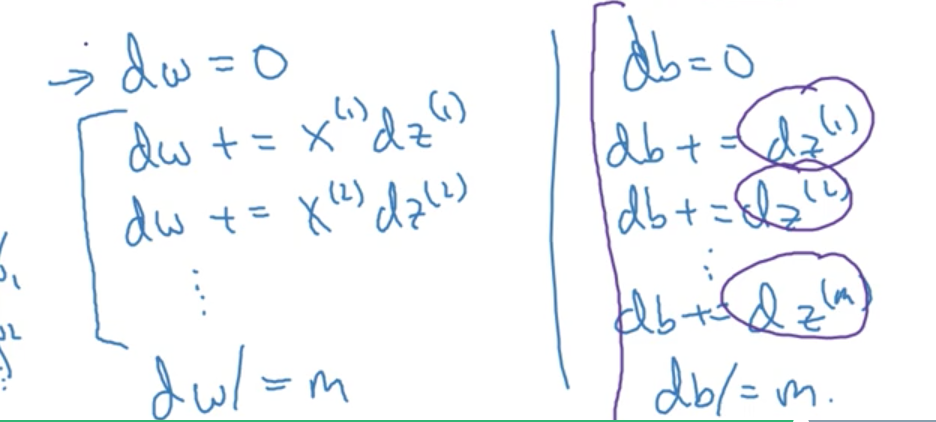 → dw = 0
dw += x^(1) dz^(1)
dw += x^(2) dz^(2)
⋮
dw /= m
db = 0
db += dz^(1)
db += dz^(2)
⋮
db += dz^(m
db /= m.